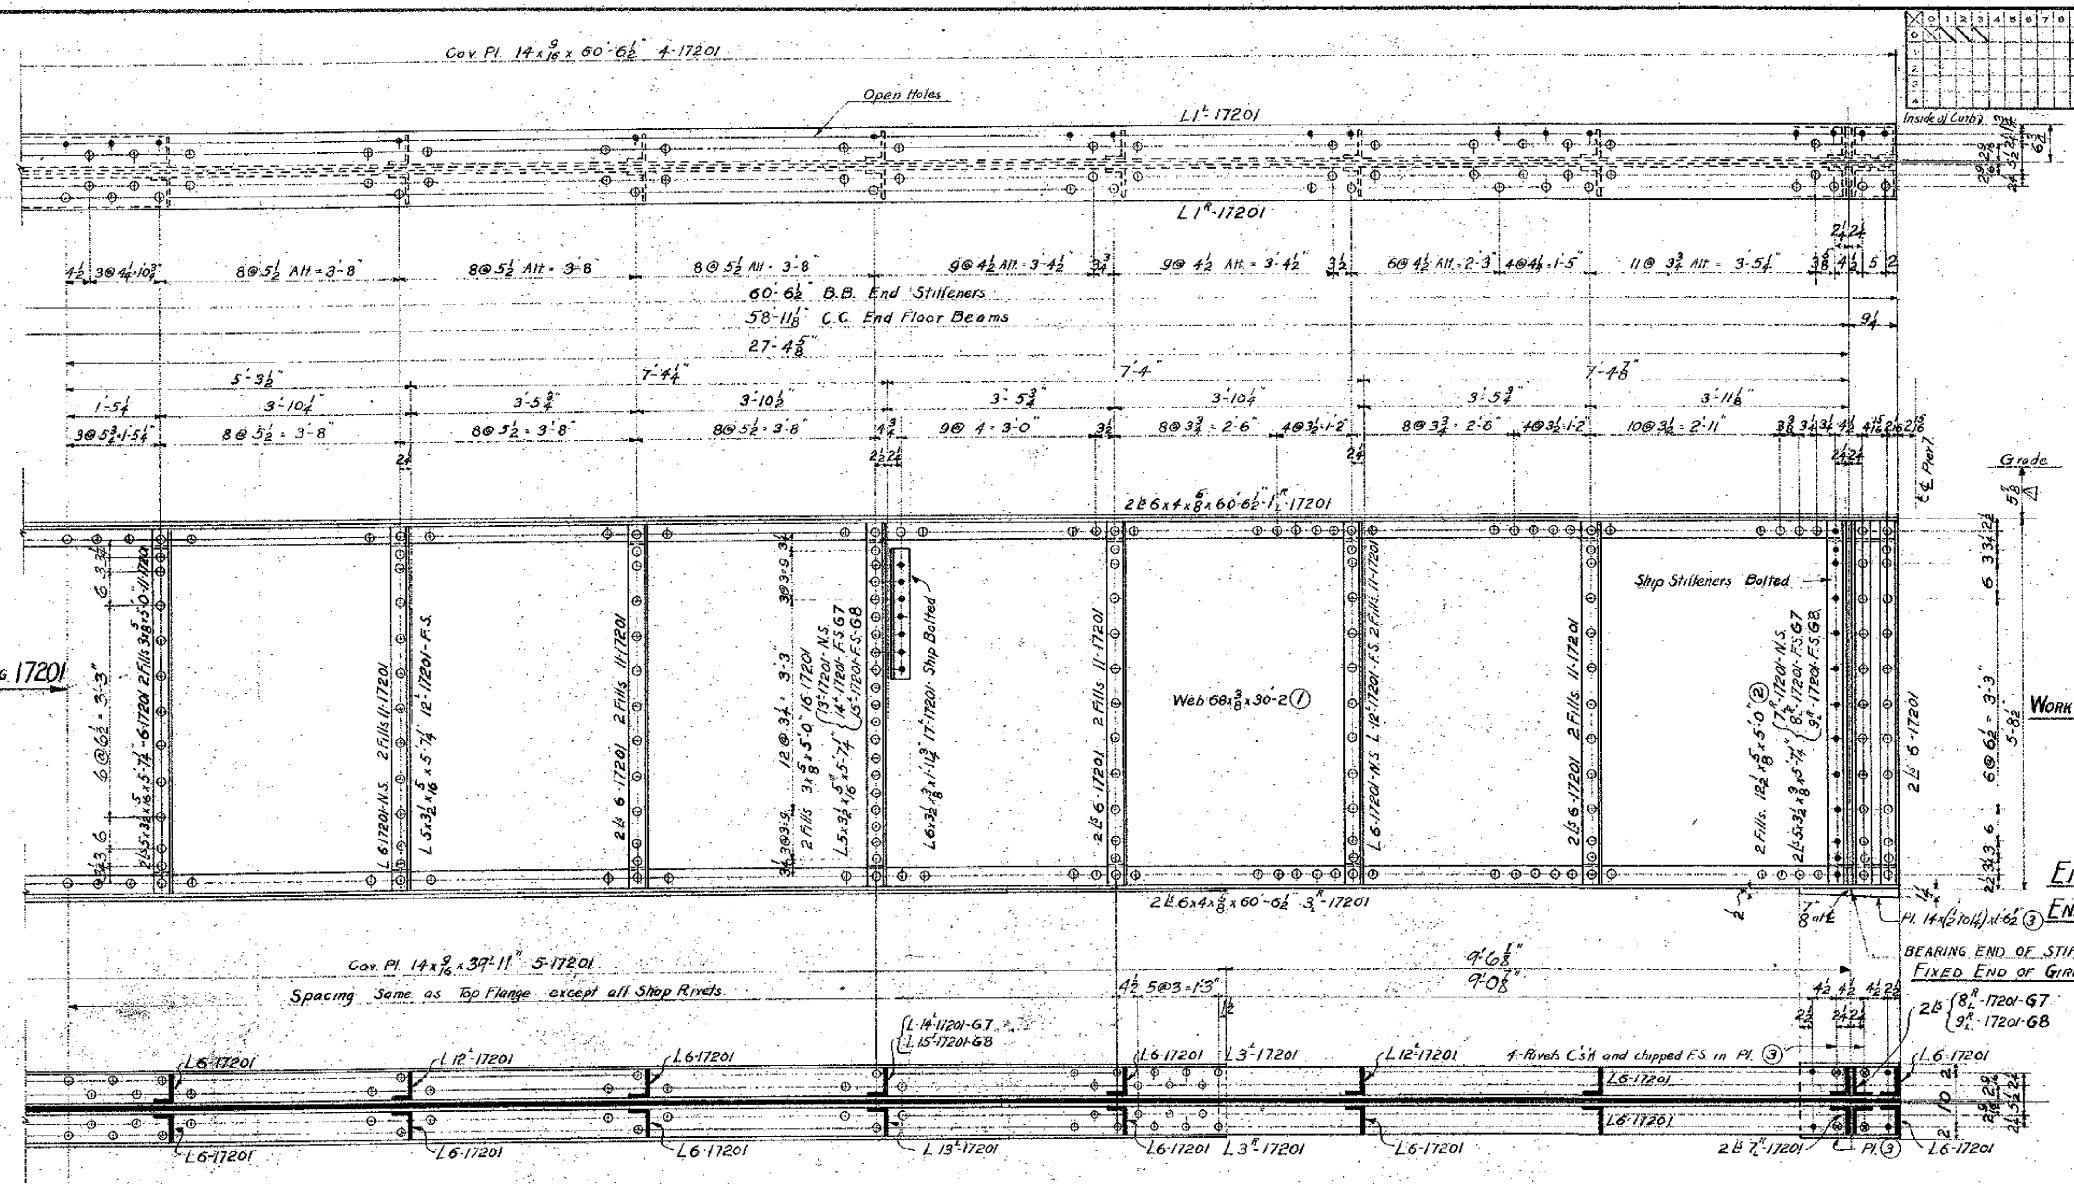 Cov. Pl. 14 x 9/16 x 60'-6½" 4-17201
Open Holes
L1ᴸ-17201
Inside of Curb
L1ᴿ-17201
4½ 3@4¼=10¾" 8@5½ Alt=3'-8" 8@5½ Alt=3'-8 8@5½ Alt=3'-8" 9@4½ Alt=3'-4½" 3¾ 9@4½ Alt=3'-4½" 3½ 6@4½ Alt=2'-3" 4@4¼=1'-5" 11@3¾ Alt=3'-5¼" 3⅝ 4½ 5 2
2¼ 2¼
60'-6½" B.B. End Stiffeners
58'-11⅛" C.C. End Floor Beams
9¼
27'-4⅝"
5'-3½" 7'-4¼" 7'-4" 7'-4⅞"
1'-5¼ 3'-10¼" 3'-5¾" 3'-10½" 3'-5¾" 3'-10¼" 3'-5¾" 3'-11⅛"
3@5¾=1'-5¼" 8@5½=3'-8" 8@5½=3'-8" 8@5½=3'-8" 4¾ 9@4=3'-0" 3½ 8@3¾=2'-6" 4@3½=1'-2" 8@3¾=2'-6" 4@3½=1'-2 10@3½=2'-11"
2¼ 2½ 2¼ 2¼ 2¼ 2¼
℄ Pier 7
Grade
2Ls 6x4x⅝x60'-6½"-1-17201
17201
2Ls 5x3½x5/16x5'-7¼"-6-17201 2 Fills 3x5/8x5'-0-11-17201
L6-17201-N.S. 2 Fills 11-17201
L5x3½x5/16x5'-7¼" 12ᴸ-17201-F.S.
2Ls 6-17201 2 Fills 11-17201
3¼ 3@3=9 12@3¼=3'-3" 3@3=9 3¼
2 Fills 3x⅝x5'-0" 16-17201
L5x3½x5/16x5'-7¼" 13ᴸ-17201-N.S.
14ᴸ-17201-F.S G7
15ᴸ-17201-F.S-G8
L6x3½x⅜x1'-11¾" 17ᴸ-17201-Ship Bolted
2Ls 6-17201 2 Fills 11-17201
Web 68x⅜x30'-2 ①
L6-17201-N.S L12ᴸ-17201-F.S. 2 Fills 11-17201
2Ls 6-17201 2 Fills 11-17201
Ship Stiffeners Bolted
2 Fills 12½x⅝x5'-0" ②
2Ls 5x3½x⅜x5'-7¼" 7-17201-N.S.
8-17201-F.S G7
9-17201-F.S G8
2Ls 6-17201
6 6@6½=3'-3" 6
6 6@6½=3'-3" 6
5'-8½"
WORK
2Ls 6x4x⅝x60'-6½" 3-17201
Pl. 14x(½ to ¼)x1'-6½" ③
EN
BEARING END OF STI
FIXED END OF GIR
Cov. Pl. 14 x 9/16 x 39'-11" 5-17201
Spacing Same as Top Flange except all Shop Rivets
4½ 5@3=1'-3"
9'-6⅛"
9'-0⅞"
4½ 4½ 4½ 2½
2Ls 8-17201-G7
9-17201-G8
L14ᴸ-17201-G7
L15ᴸ-17201-G8
4-Rivets C'sk and chipped F.S. in Pl. ③
L6-17201 L12ᴸ-17201 L6-17201 L6-17201 L3ᴸ-17201 L12ᴸ-17201 L6-17201 L6-17201
2 10 2
L6-17201
L6-17201 L6-17201 L6-17201 L13ᴸ-17201 L6-17201 L3ᴿ-17201 L6-17201 2Ls 7-17201 Pl. ③ L6-17201